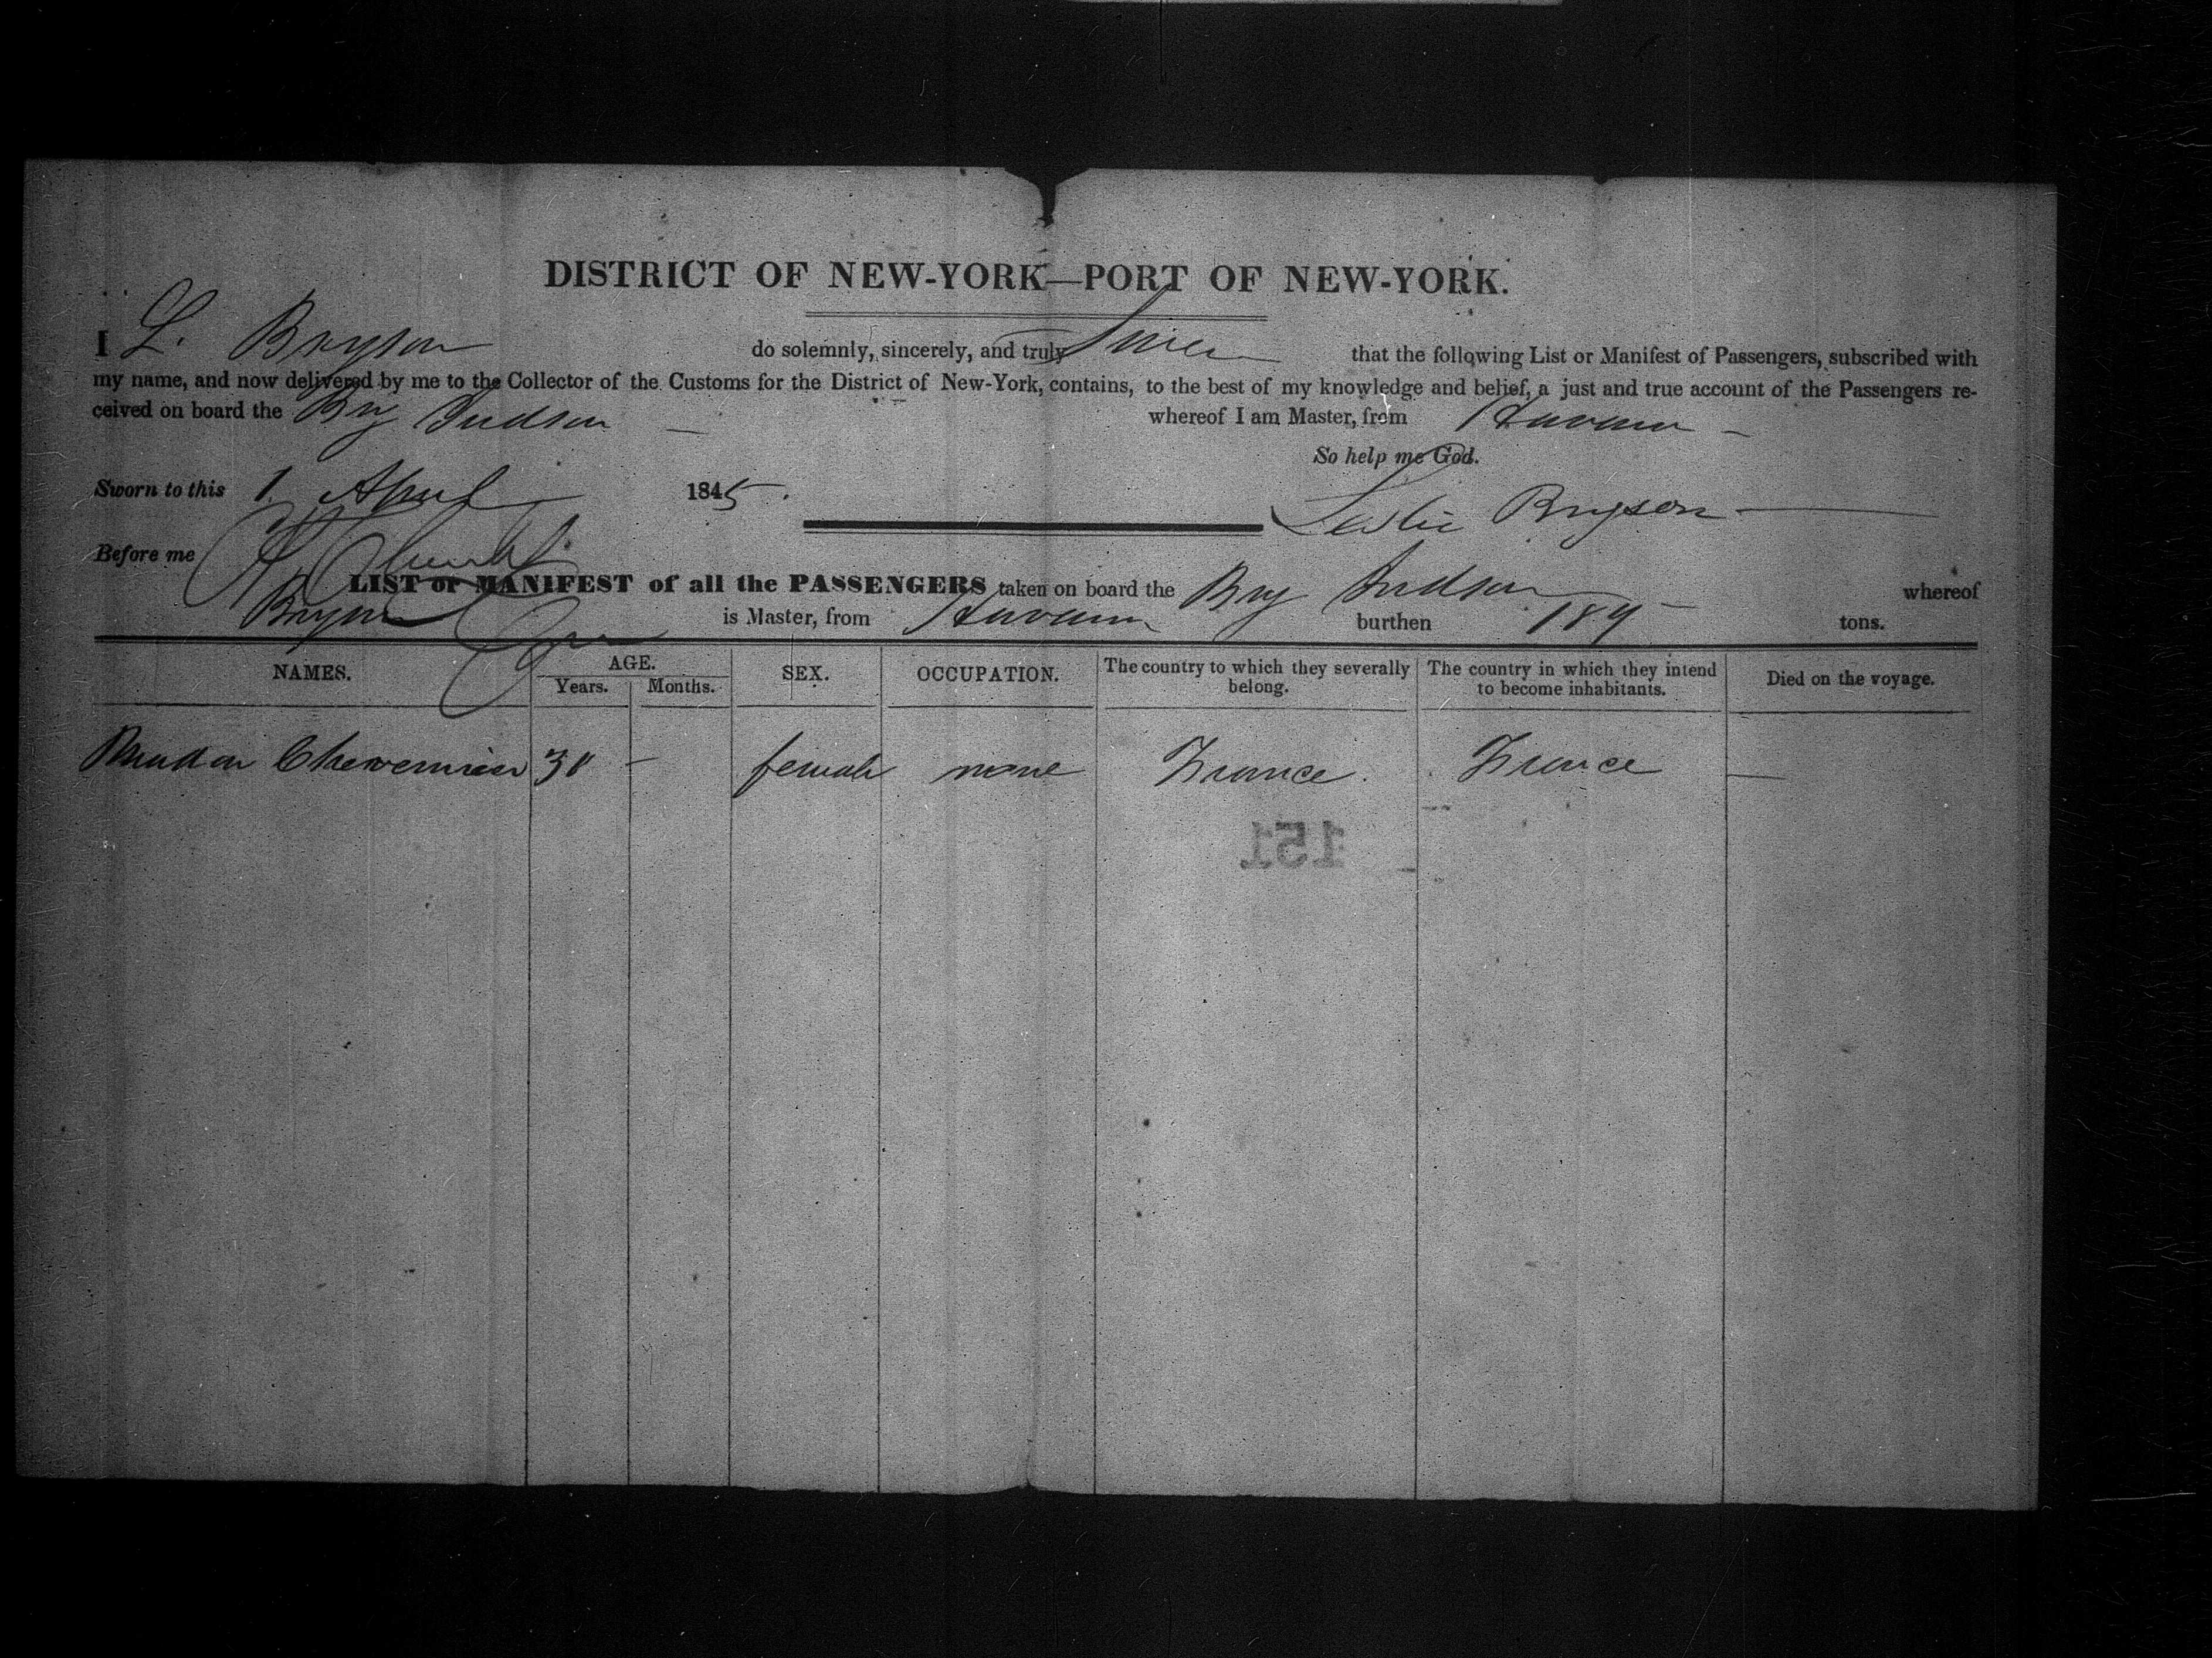 DISTRICT OF NEW-YORK—PORT OF NEW-YORK.
I L. Bryson do solemnly, sincerely, and truly Swear that the following List or Manifest of Passengers, subscribed with
my name, and now delivered by me to the Collector of the Customs for the District of New-York, contains, to the best of my knowledge and belief, a just and true account of the Passengers re-
ceived on board the Brig Judson — whereof I am Master, from Havana —
So help me God.
Sworn to this 1. April 1845.
Leslie Bryson
Before me
LIST or MANIFEST of all the PASSENGERS taken on board the Brig Judson whereof
Bryson is Master, from Havana burthen 189 tons.
NAMES. AGE. SEX. OCCUPATION. The country to which they severally belong. The country in which they intend to become inhabitants. Died on the voyage.
Years. Months.
30 — female none France. France —
151